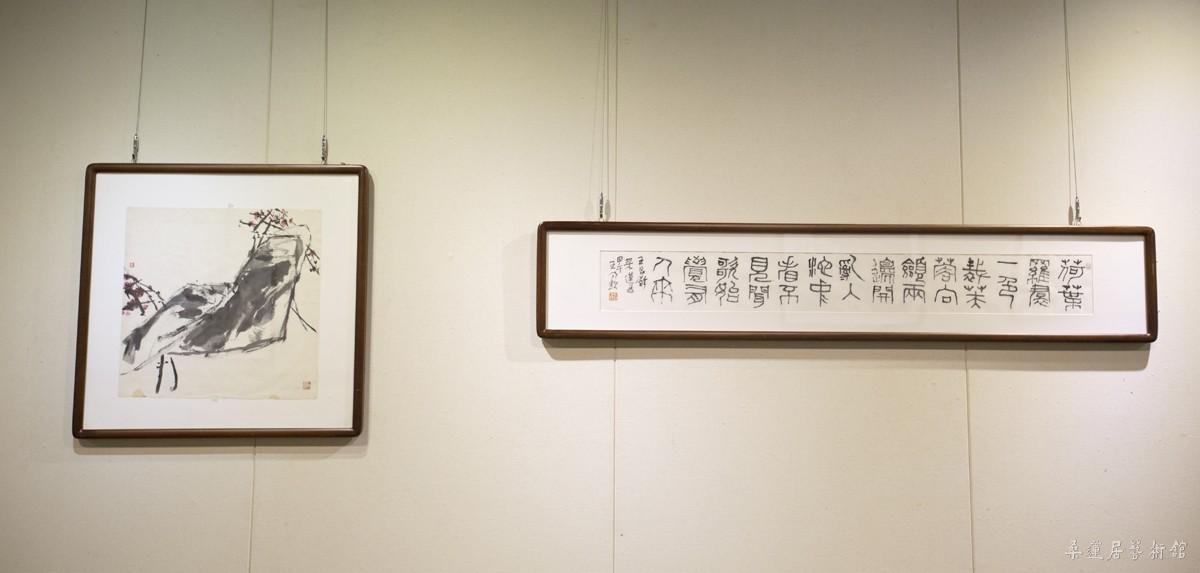 荷葉
羅裙
一色
裁芙
蓉向
臉兩
邊開
亂入
池中
看不
見聞
歌始
覺有
人來
王昌齡
采蓮曲
甲午
桑蓮居藝術館